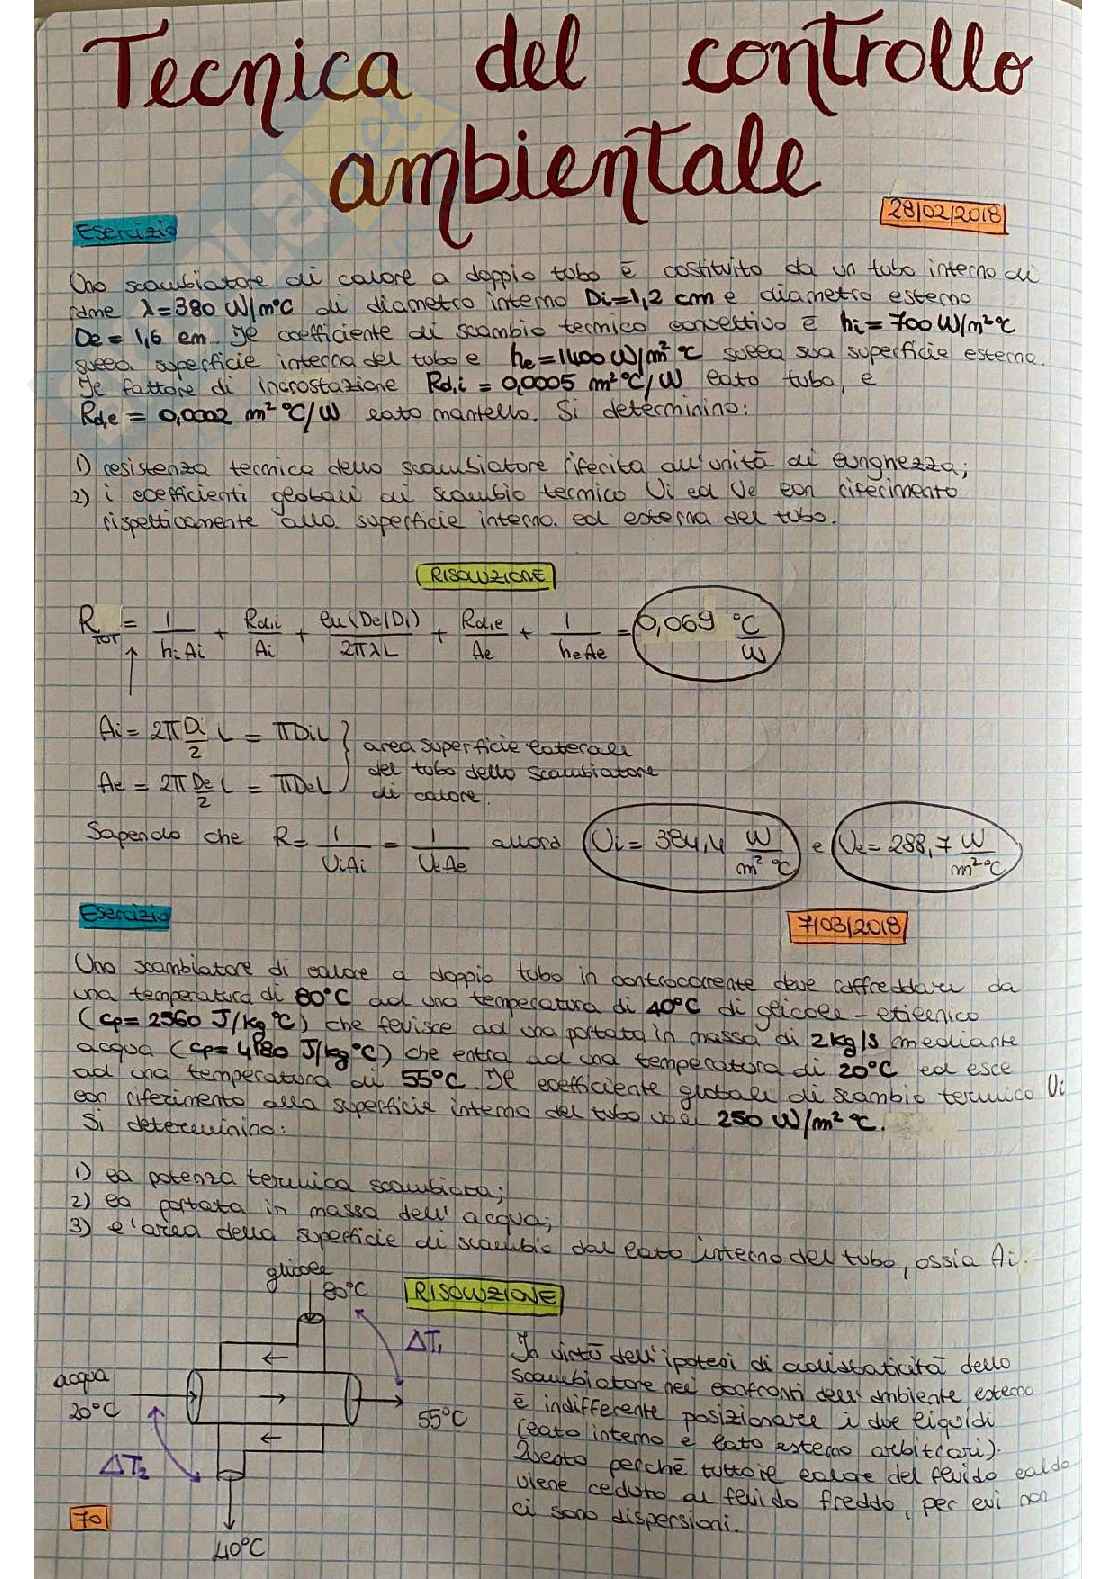 Tecnica del controllo
ambientale
Esercizio
28/02/2018
Uno scambiatore di calore a doppio tubo è costituito da un tubo interno di
rame λ=380 W/m°C di diametro interno Di=1,2 cm e diametro esterno
De = 1,6 cm. Il coefficiente di scambio termico convettivo è hi = 700 W/m²°C
sulla superficie interna del tubo e he = 1400 W/m²°C sulla sua superficie esterna.
Il fattore di incrostazione Rd,i = 0,0005 m²°C/W lato tubo, e
Rd,e = 0,0002 m²°C/W lato mantello. Si determinino:
1) resistenza termica dello scambiatore riferita all'unità di lunghezza;
2) i coefficienti globali di scambio termico Ui ed Ue con riferimento
rispettivamente alla superficie interna ed esterna del tubo.
RISOLUZIONE
R TOT = 1/hiAi + Rd,i/Ai + ln(De/Di)/2πλL + Rd,e/Ae + 1/heAe = 0,069 °C/W
Ai = 2π Di/2 L = πDiL
Ae = 2π De/2 L = πDeL
} area superficie laterale
del tubo dello scambiatore
di calore.
Sapendo che R = 1/UiAi = 1/UeAe allora Ui = 384,4 W/m²°C e Ue = 288,7 W/m²°C
Esercizio
7/03/2018
Uno scambiatore di calore a doppio tubo in controcorrente deve raffreddare da
una temperatura di 80°C ad una temperatura di 40°C di glicole-etilenico
(cp = 2560 J/kg°C) che fluisce ad una portata in massa di 2kg/s mediante
acqua (cp = 4180 J/kg°C) che entra ad una temperatura di 20°C ed esce
ad una temperatura di 55°C. Il coefficiente globale di scambio termico Ui
con riferimento alla superficie interna del tubo vale 250 W/m²°C.
Si determinino:
1) la potenza termica scambiata;
2) la portata in massa dell'acqua;
3) l'area della superficie di scambio dal lato interno del tubo, ossia Ai.
RISOLUZIONE
glicole
80°C
ΔT₁
←
acqua
20°C
→
55°C
←
ΔT₂
40°C
In virtù dell'ipotesi di adiabaticità dello
scambiatore nei confronti dell'ambiente esterno
è indifferente posizionare i due liquidi
(lato interno e lato esterno arbitrari).
Questo perché tutto il calore del fluido caldo
viene ceduto al fluido freddo, per cui non
ci sono dispersioni.
70